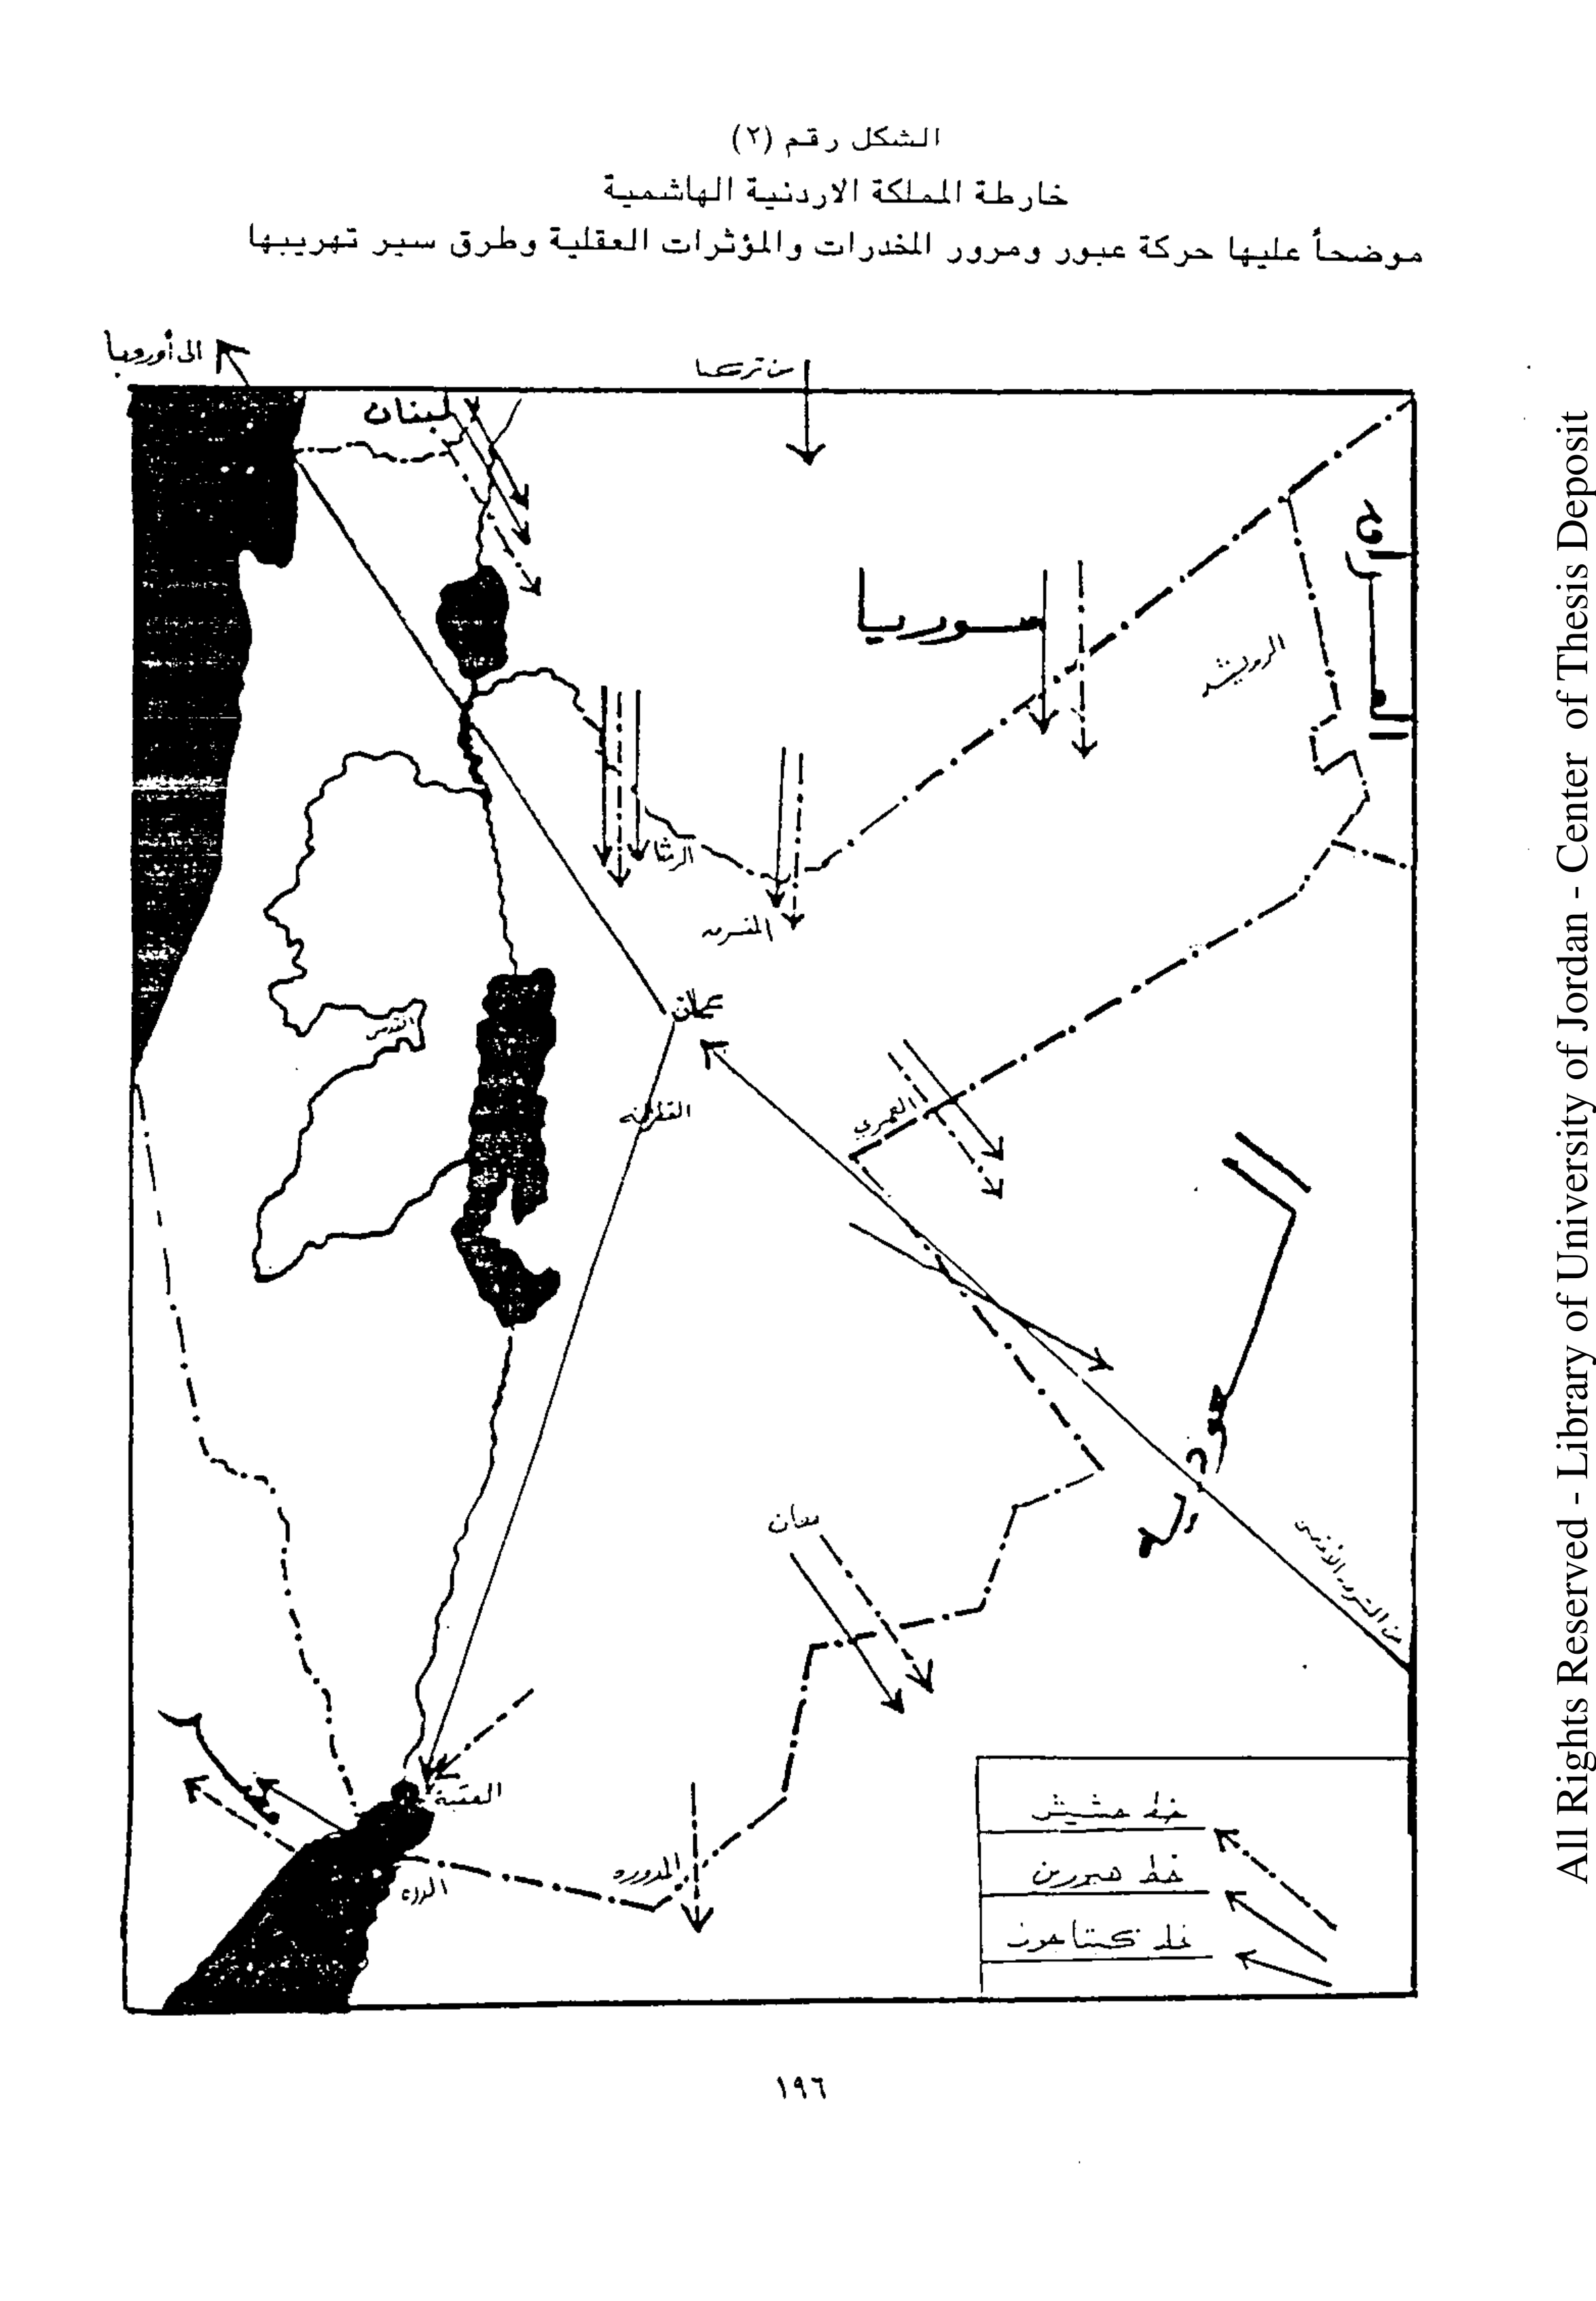 الشكل رقم (٢)
خارطة المملكة الاردنية الهاشمية
موضحاً عليها حركة عبور ومرور المخدرات والمؤثرات العقلية وطرق سير تهريبها
الى أوروبا
من تركيا
لبنان
سوريا
العراق
الرويشد
الرمثا
المفرق
عمان
القدس
القطرانه
العمري
السعودية
من الشرق الأقصى
معان
مصر
العقبة
المدوره
الدره
خط حشيش
خط هيروين
خط كبتاجون
١٩٦
All Rights Reserved - Library of University of Jordan - Center of Thesis Deposit